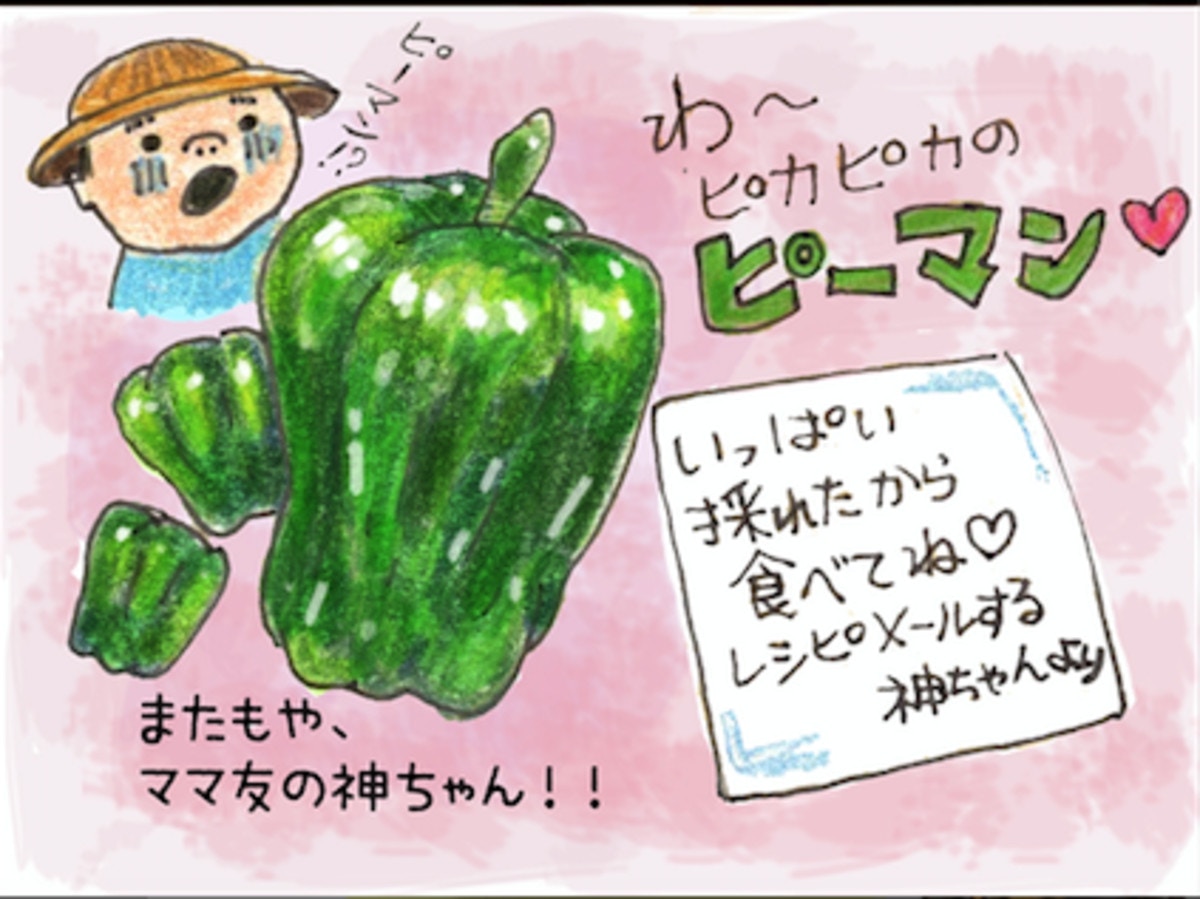 ピーマン!?
わ〜
ピカピカの
ピーマン
いっぱい
採れたから
食べてね♡
レシピメールする
神ちゃんより
またもや、
ママ友の神ちゃん！！